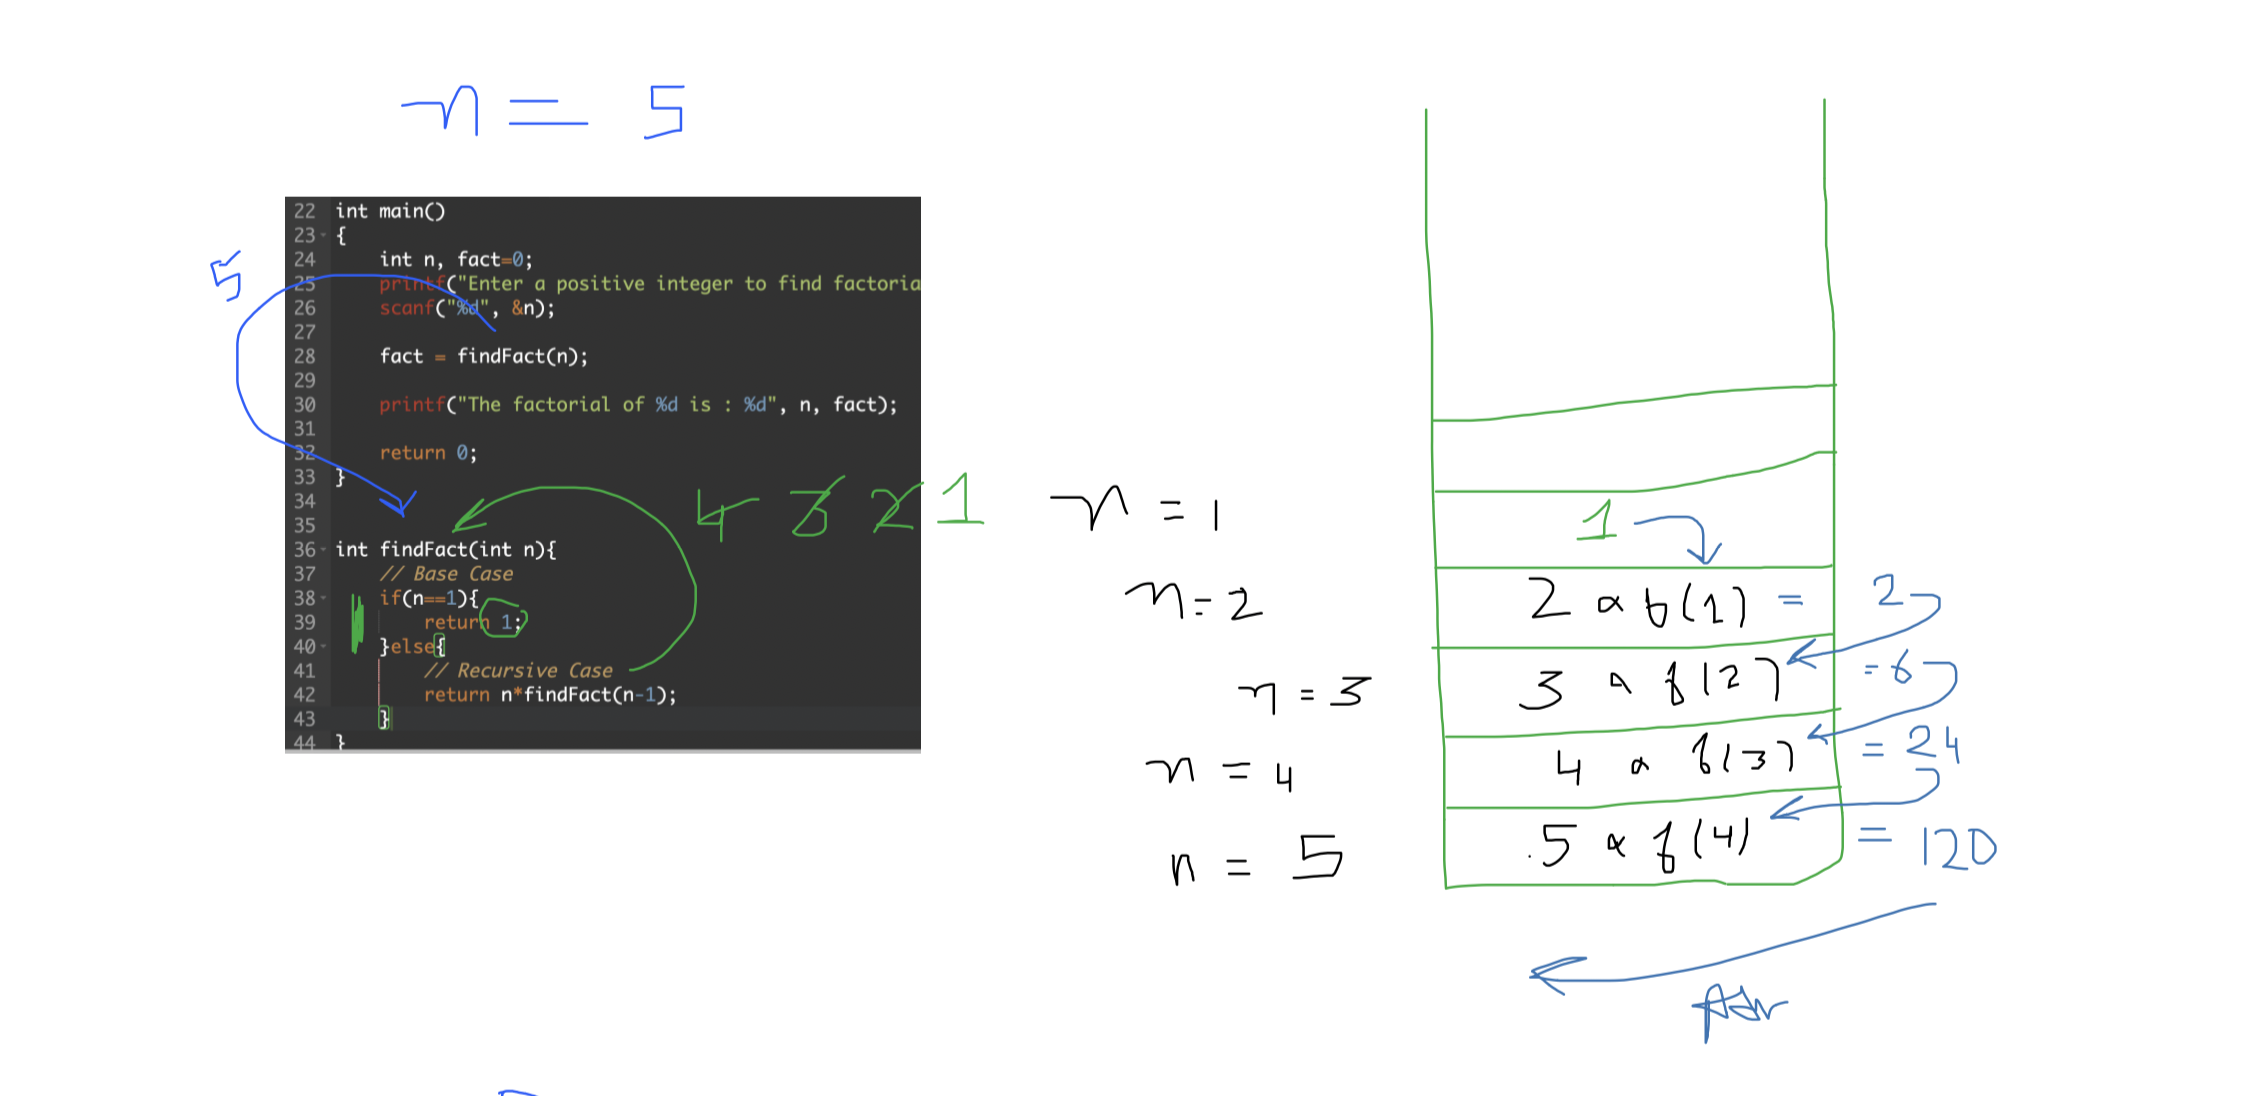 n = 5
5
22 int main()
23 {
24 int n, fact=0;
25 printf("Enter a positive integer to find factoria
26 scanf("%d", &n);
27
28 fact = findFact(n);
29
30 printf("The factorial of %d is : %d", n, fact);
31
32 return 0;
33 }
34
35
36 int findFact(int n){
37 // Base Case
38 if(n==1){
39 return 1;
40 }else{
41 // Recursive Case
42 return n*findFact(n-1);
43 }
44 }
4 3 2 1
n = 1
n = 2
n = 3
n = 4
n = 5
1
2 * f(1) = 2
3 * f(2) = 6
4 * f(3) = 24
5 * f(4) = 120